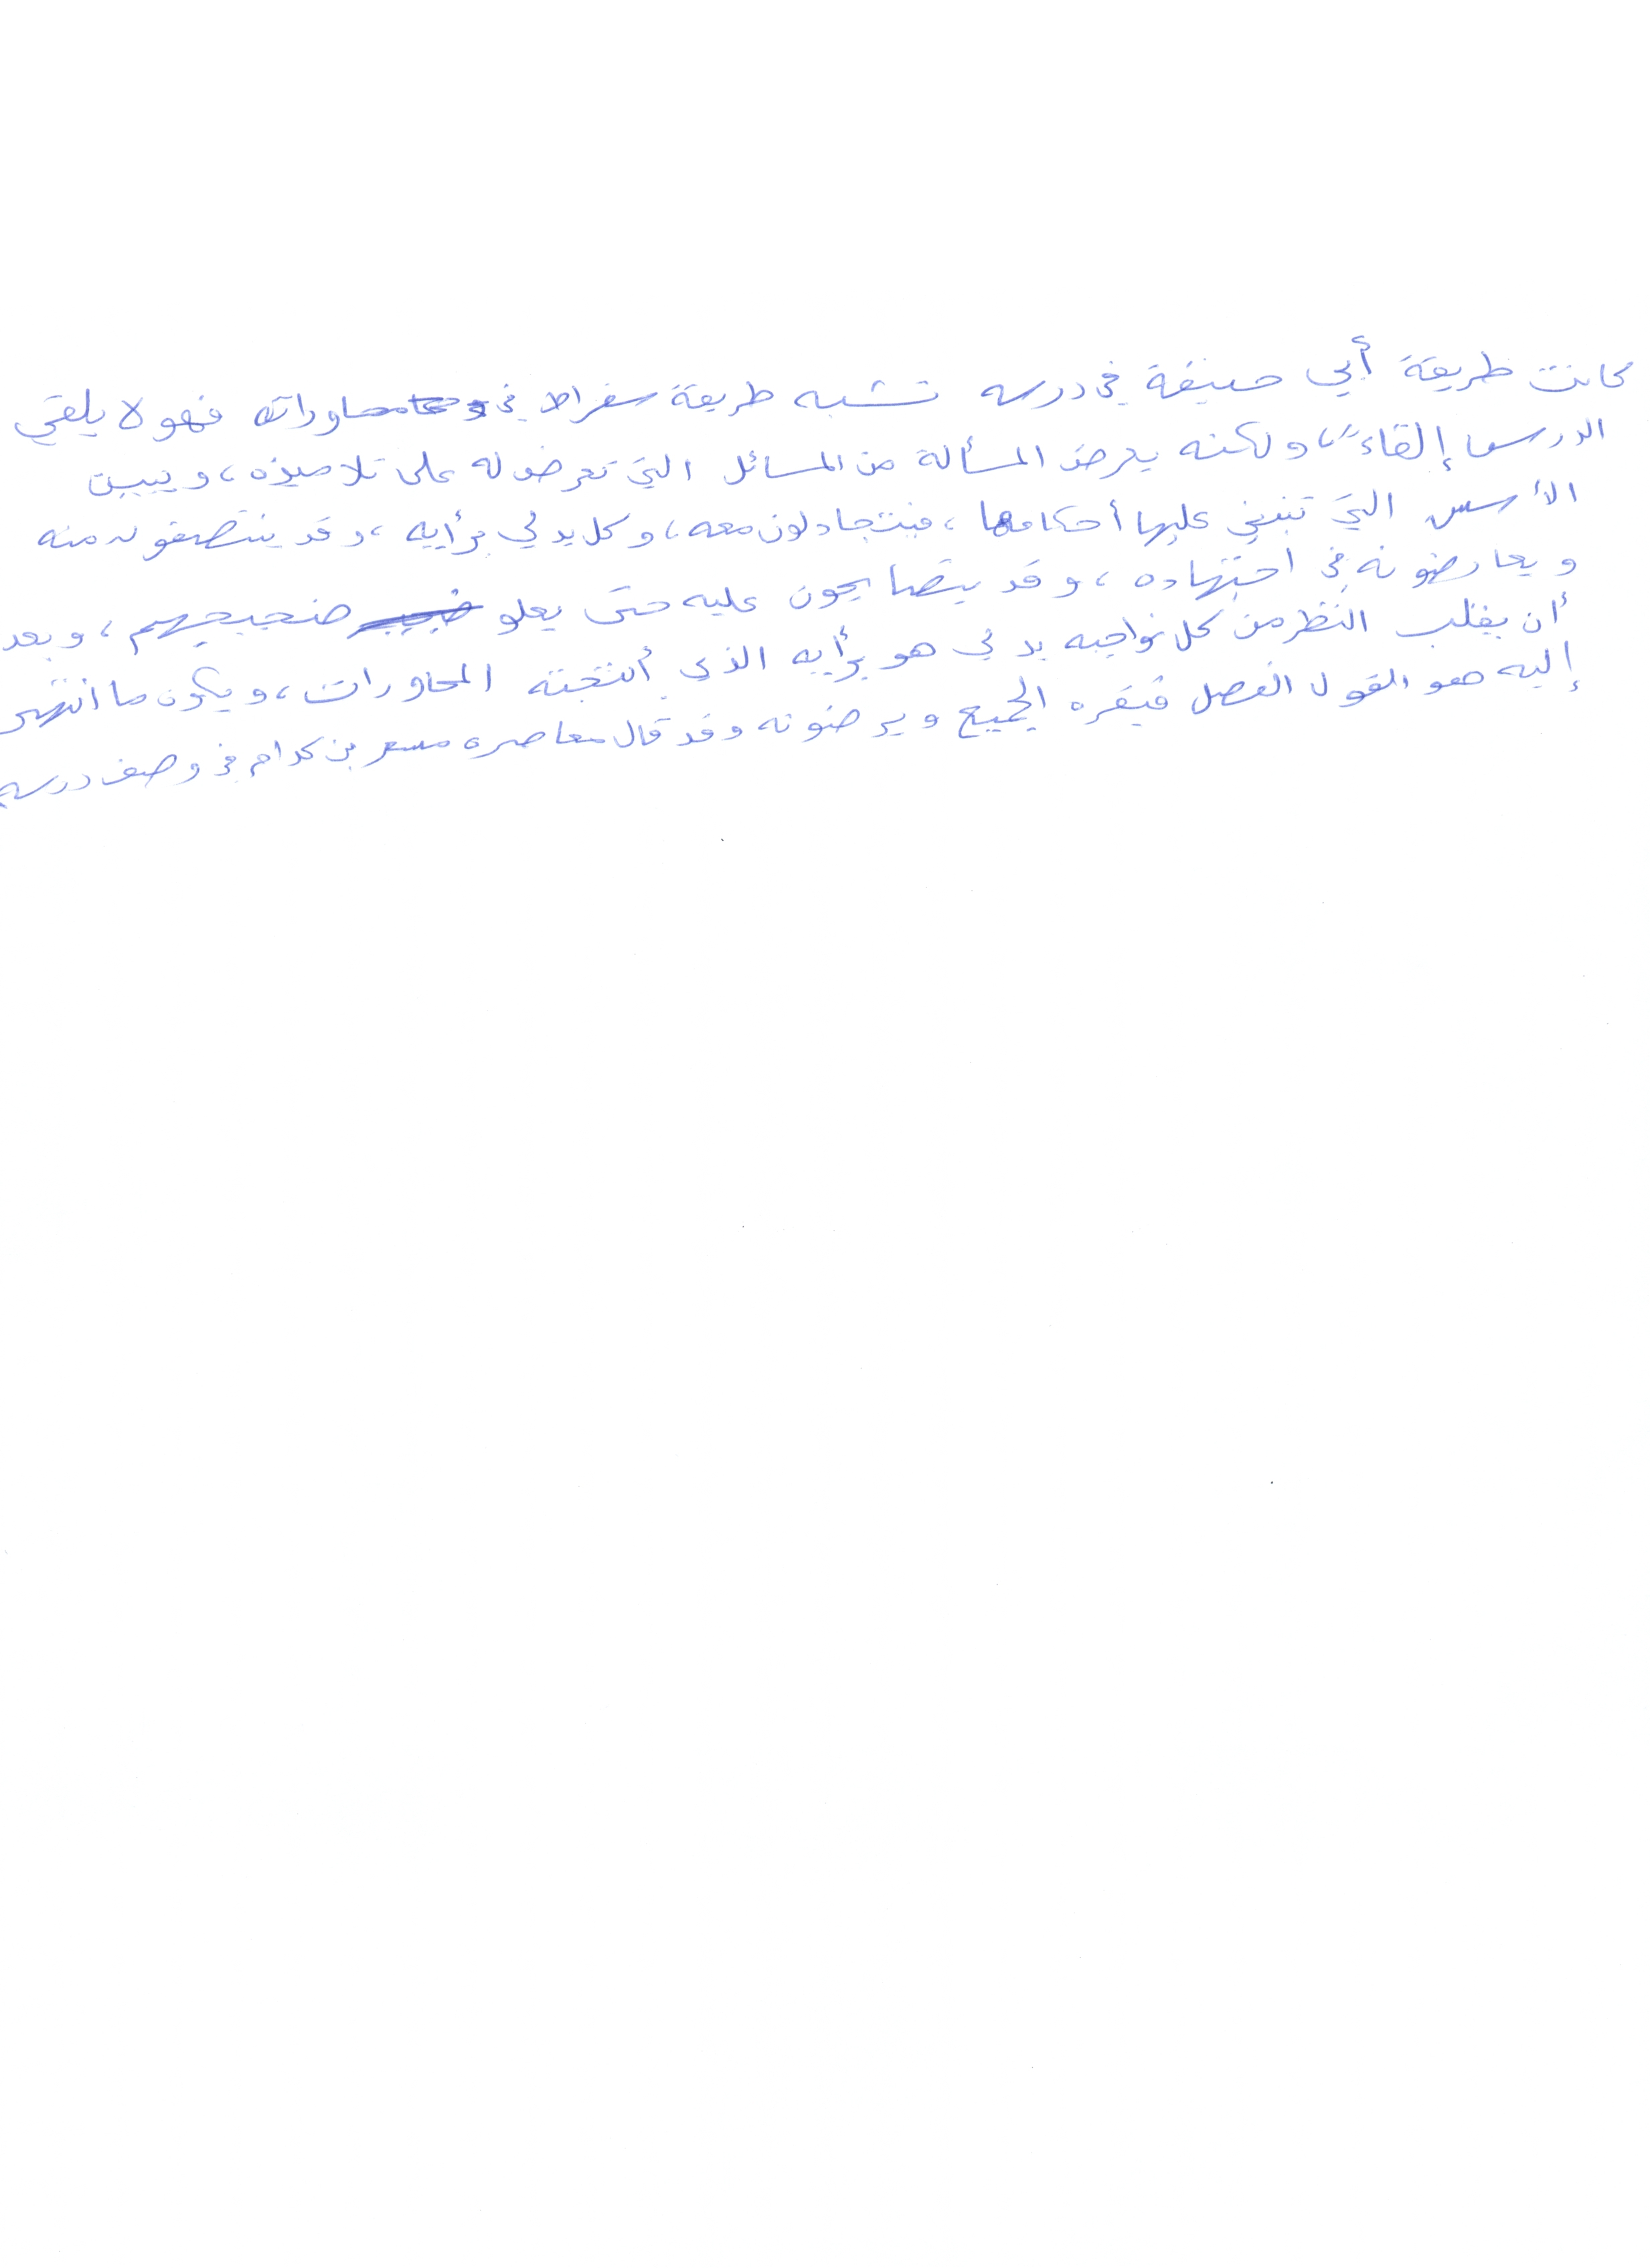 كانت طريقة أبي حنيفة في درسه تشبه طريقة سقراط في محاوراته فهو لا يلقي
الدرس إلقاءً، ولكنه يعرض المسألة من المسائل التي تعرض له على تلاميذه، ويبين
الأسس التي تنبني عليها أحكامها، فيتجادلون معه، وكل يدلي برأيه، وقد ينتصفون منه
ويعارضونه في اجتهاده، وقد يتصايحون عليه حتى يعلو ضجيجهم، وبعد
أن يقلب النظر من كل نواحيه يدلي هو برأيه الذي أنتجته المحاورات، ويكون ما انتهى
إليه هو القول الفصل فيقره الجميع ويرضونه وقد قال معاصره مسعر بن كدام في وصف درسه